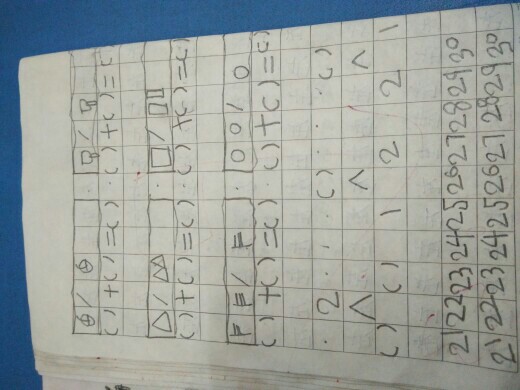 ( ) + ( ) = ( ) · ( ) + ( ) = ( )
( ) + ( ) = ( ) · ( ) + ( ) = ( )
( ) + ( ) = ( ) · ( ) + ( ) = ( )
2 ( ) ( )
( ) ( ) 1 2 2 1
21 22 23 24 25 26 27 28 29 30
21 22 23 24 25 26 27 28 29 30